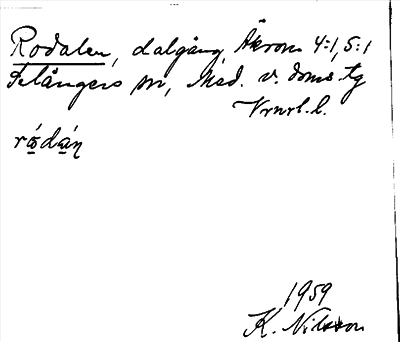 Rodalen, dalgång, Åkrom 4:1, 5:1
Selångers sn, Med. v. doms. tg
Vrnrl. l.
ródán
1959
K. Nilsson